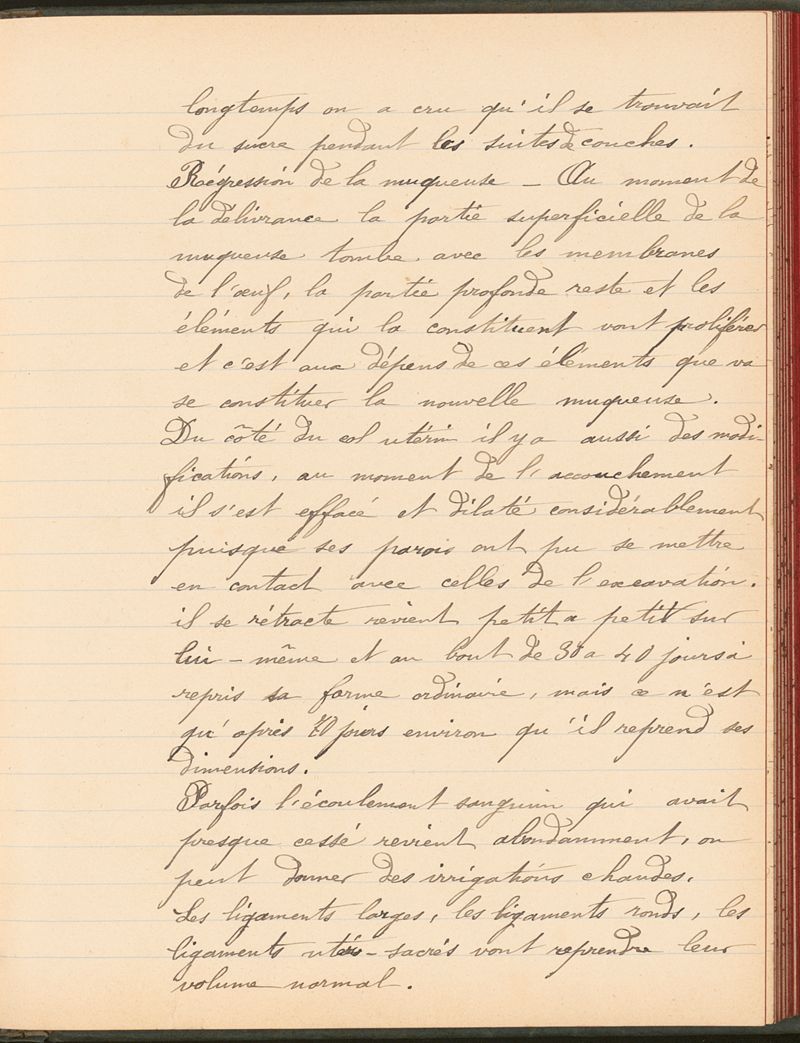 longtemps on a cru qu'il se trouvait
du sucre pendant les suites de couches.
Régression de la muqueuse – Au moment de
la délivrance la partie superficielle de la
muqueuse tombe avec les membranes
de l'œuf, la partie profonde reste et les
éléments qui la constituent vont proliférer
et c'est aux dépens de ces éléments que va
se constituer la nouvelle muqueuse.
Du côté du col utérin il y a aussi des modi-
fications, au moment de l'accouchement
il s'est effacé et dilaté considérablement
puisque ses parois ont pu se mettre
en contact avec celles de l'excavation.
il se rétracte revient petit a petit sur
lui-même et au bout de 30 a 40 jours a
repris sa forme ordinaire, mais ce n'est
qu'après 70 jours environ qu'il reprend ses
dimensions.
Parfois l'écoulement sanguin qui avait
presque cessé revient abondamment, on
peut donner des irrigations chaudes.
Les ligaments larges, les ligaments ronds, les
ligaments utéro-sacrés vont reprendre leur
volume normal.